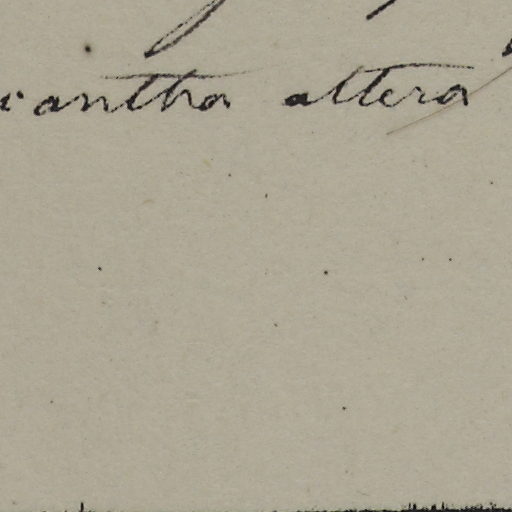 cantha altera